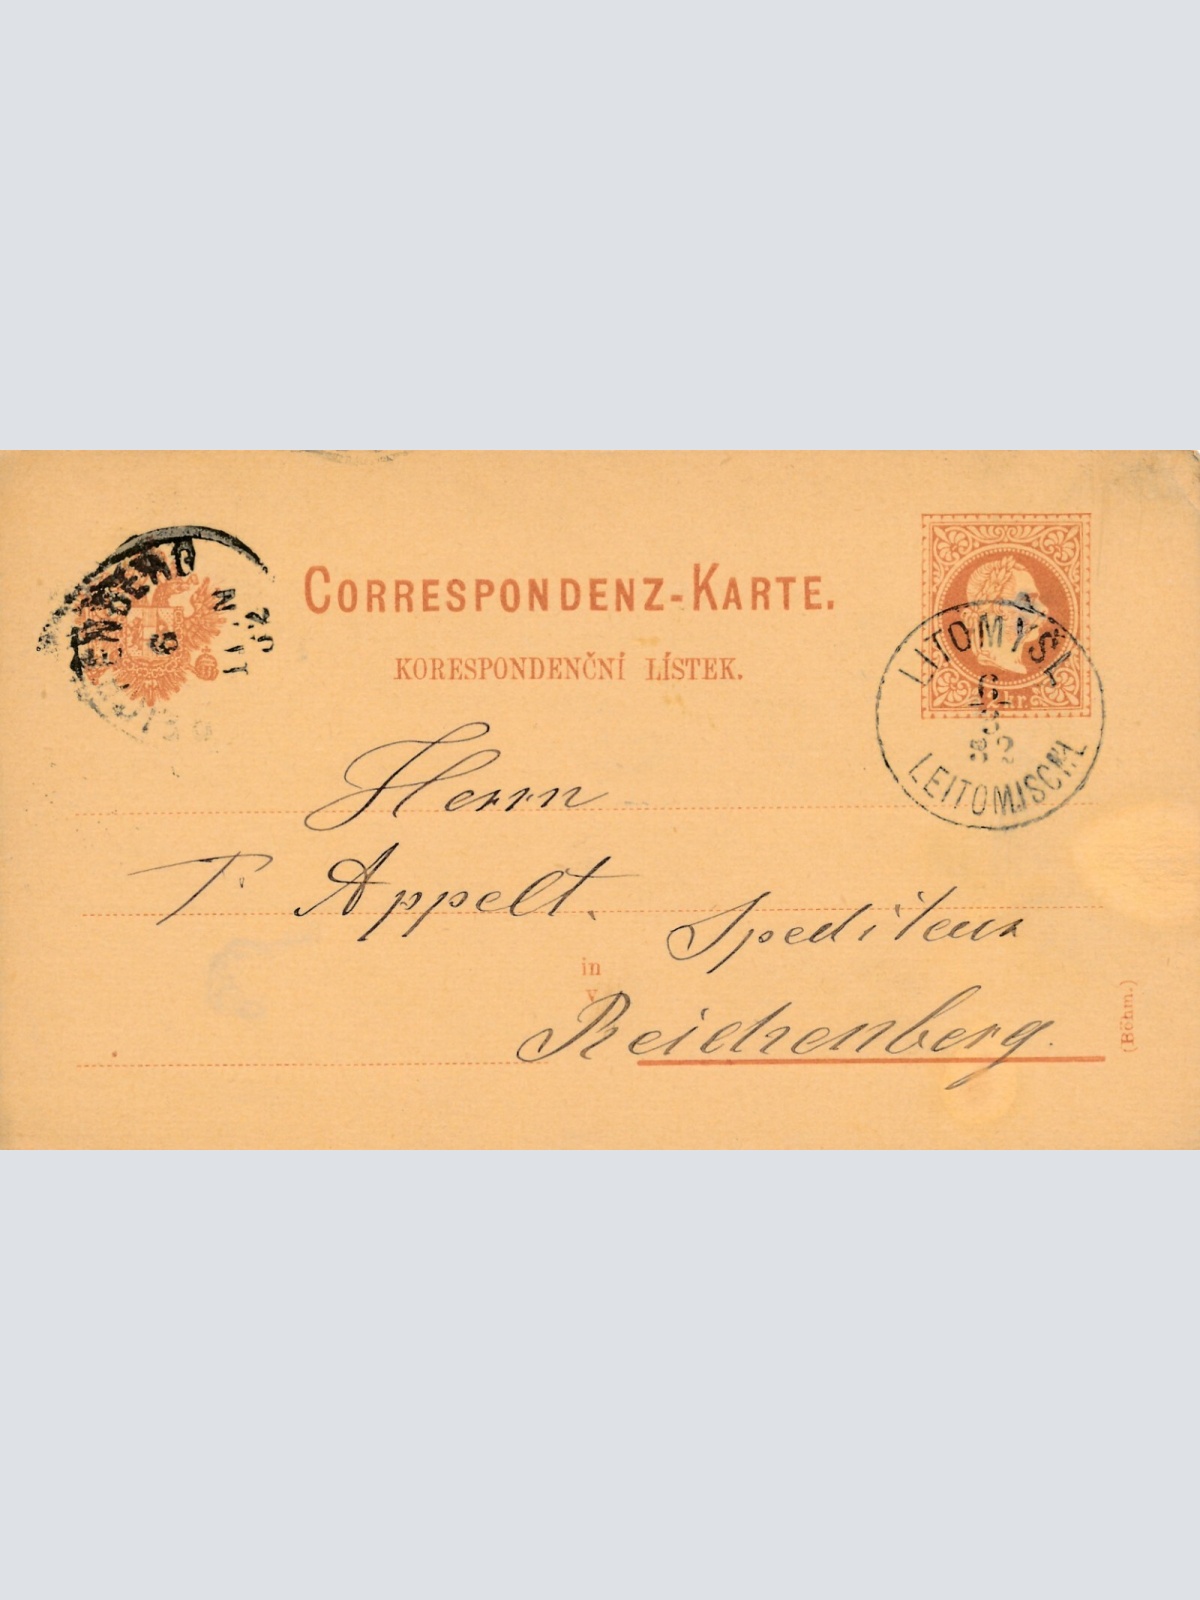 CORRESPONDENZ-KARTE.
KORESPONDENČNÍ LÍSTEK.
2 kr.
LITOMYŠL
6
82
LEITOMISCHL
Herrn
Appelt.
Spediteur
in
v
Reichenberg.
(Böhm.)